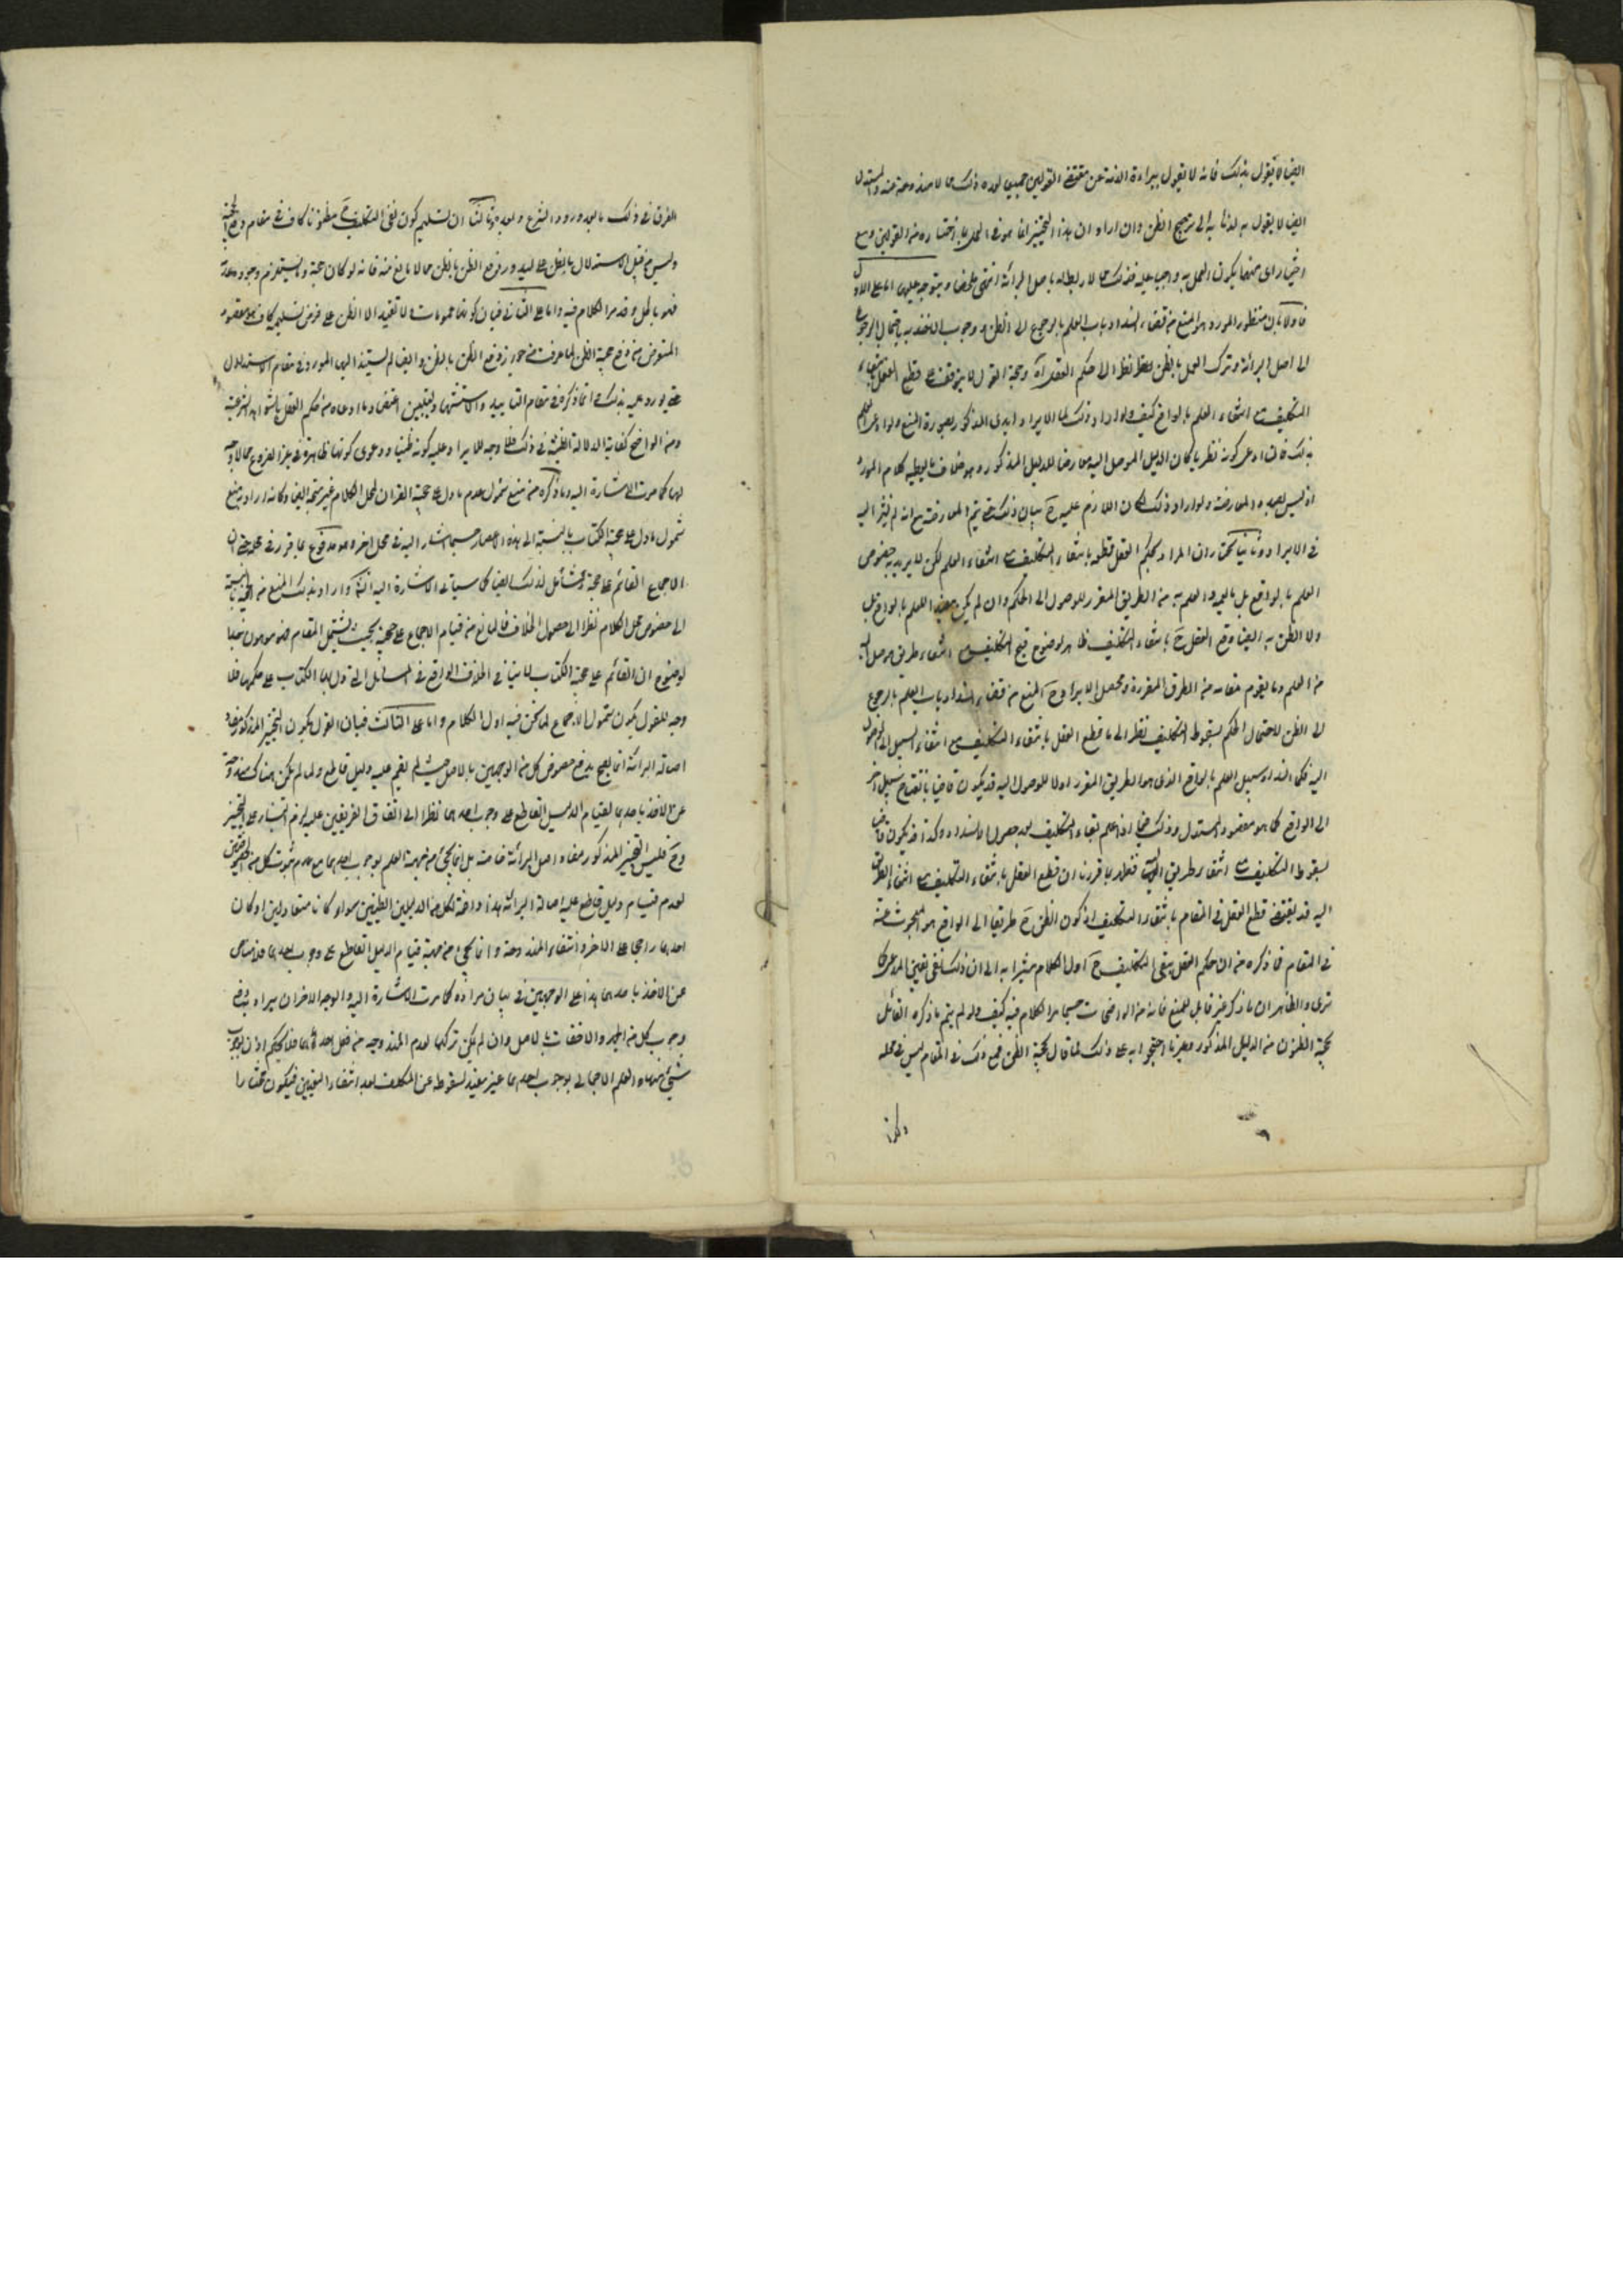 ايضا لا يقول بذلك فانه لا يقول ببراءة الذمة عن مقتضى القولين جميعا لوده ذلك مما لا مندوحة عنه والمستدل
ايضا لا يقول به لذهابه الى ترجيح الظن وان اراد ان هذا التخيير انما هو في العمل باختياره من القولين ومع
اختيار اى منهما يكون العمل به واجبا عليه فذلك مما لا ربط له باصل البرائة انتهى ملخصا ويتوجه عليها اما على الاول
فاولا بان منظور المورد هو المنع من قضاء انسداد باب العلم بالرجوع الى الظن و وجوب الاخذ به
الى اصل البرائة وترك العمل بالظن نظرا الى حكم العقل وحجة القول لا يتوقف على قطع العقل بانتفاء
التكليف مع انتفاء العلم بالواقع كيف ولو اراد ذلك لما الايراد ابدى المذكور بصورة المنع ولو ادعى العلم
بذلك فان ادعى كونه نظريا كان الدليل الموصل اليه معارضا للدليل المذكور وهو خلاف ما يعطيه كلام المورد
اذ ليس بصدد المعارضة ولو اراد ذلك لكان اللازم عليه ح بيان ذلك حتى يتم المعارضة مع انه لم يشر اليه
في الايراد وثانيا نختار ان المراد بحكم العقل قطعه بانتفاء التكليف مع انتفاء العلم لكن لا يريد به خصوص
العلم بالواقع بل ما يعمه والعلم به من الطريق المقرر للوصول الى الحكم وان لم يكن مفيد للعلم بالواقع بل
ولا الظن به ايضا وقطع العقل ح بانتفاء التكليف ظاهر لوضوح قبح التكليف مع انتفاء طريق موصل اليه
من العلم وما يقوم مقامه من الطرق المقررة ومحصل الايراد ح المنع من قضاء انسداد باب العلم بالرجوع
الى الظن لاحتمال الحكم بسقوط التكليف نظرا الى ما قطع العقل بانتفاء التكليف مع انتفاء السبيل الى الوصول
اليه فكما انسداد سبيل العلم بالواقع الذى هو الطريق المقرر اولا للوصول اليه قد يكون قاضيا بانفتاح سبيل اخر
الى الواقع كما هو مقصود المستدل وذلك فيما اذا علم بقاء التكليف بعد حصول الانسداد وكذا قد يكون قاضيا
بسقوط التكليف مع انتفاء طريق اليه فظهر بما قررنا ان قطع العقل بانتفاء التكليف مع انتفاء الطريق
اليه قد يقتضى قطع العقل في المقام بانتفاء التكليف اذ كون الظن ح طريقا الى الواقع هو المبحوث عنه
في المقام فما ذكره من ان حكم العقل بنفى التكليف ح اول الكلام مشيرا به الى ان ذلك نفى لعين المدعى كما
ترى والظاهر ان ما ذكر غير قابل للمنع فانه من الواضحات حسبما مر الكلام فيه كيف ولو لم يتم ما ذكره القائل
بحجية الظنون من الدليل المذكور وغيرها احتجوا به على ذلك لما قال بحجية الظن فمنع ذلك في المقام ليس في محله
الفرق في ذلك ما بعد ورود الشرع وبعده وثالثا ان تسليم كون نفى التكليف ح مظنونا كاف في مقام دفع الحجية
وليس من قبيل الاستدلال بالظن على و رفع الظن بالظن مما لا مانع منه فانه لو كان حجة يستلزم وجوده عدمه
فهو باطل وقد مر الكلام فيه واما على الثانى فبان كونها عمومات لا تفيد الا الظن على فرض تسليمه كاف في مقصود
المستعرض من دفع حجية الظن لما عرفت من جواز دفع الظن بالظن وايضا لم يستند اليها المورد في مقام الاستدلال
حتى يورد عليه بذلك وانما ذكره في مقام التاييد والاستشهاد وليتبين اعتضاد ما ادعاه من حكم العقل بالشواهد الشرعية
ومن الواضح كفاية الدلالة الظنية في ذلك فلا وجه للايراد عليه بكونه ظنيا ودعوى كونها ظاهرة في غير الفروع مما لا وجه
لها كما مرت الاشارة اليه وما ذكره من منع شمول ما دل على حجية القران لمحل الكلام غير متجه ايضا وكانه اراد به منع
شمول ما دل على حجية الكتاب بالنسبة الى هذه الاعصار حسبما اشار اليه في محل اخر وهو مدفوع بما قرر في محله من ان
الاجماع القائم على حجيته شامل لذلك ايضا كما سياتى الاشارة اليه انشاء الله او اراد بذلك المنع من الحجية بالنسبة
الى خصوص محل الكلام نظرا الى حصول الخلاف المانع من قيام الاجماع على حجيته بحيث تشمل المقام فهو موهون جدا
لوضوح ان القائم على حجية الكتاب لا ينافى الخلاف الواقع في المسائل التى دل الكتاب على حكمها فلا
وجه للقول بكون شمول الاجماع لما نحن فيه اول الكلام واما على الثالث فبان القول بكون التخيير المذكور مفاد
اصالة البرائة انما يصح بدفع خصوص كل من الوجهين بالاصل حيث لم يقم عليه دليل قاطع ولما لم يكن هناك مندوحة
عن الاخذ باحدهما لقيام الدليل القاطع على وجوب احدهما نظرا الى اتفاق الفريقين عليه لزم البناء على التخيير
وح فليس التخيير المذكور مفاد اصل البرائة خاصة بل انما يجىء من جهة العلم بوجوب احدهما مع عدم ثبوت كل من الخصوصيتين
لعدم قيام دليل قاطع عليه اصالة البرائة هذا دافعة لكل من الدليلين الظنيين سواء كانا متعادلين او كان
احدهما راجحا على الاخر وانتفاء المندوحة وانما يجىء من جهة قيام الدليل القاطع على وجوب احدهما فلا مناص
عن الاخذ باحدهما هذا على الوجهين في بيان مراده كما مرت الاشارة اليه والوجه الاخر ان يراد به دفع
وجوب كل من الجهر والاخفات بالاصل وان لم يكن تركهما لعدم المندوحة من فعل احدهما فلا يحكم اذن بوجوب
شىء منهما والعلم الاجمالى بوجوب احدهما غير مفيد لسقوطه عن المكلف بعد انتفاء التعيين فيكون مختارا